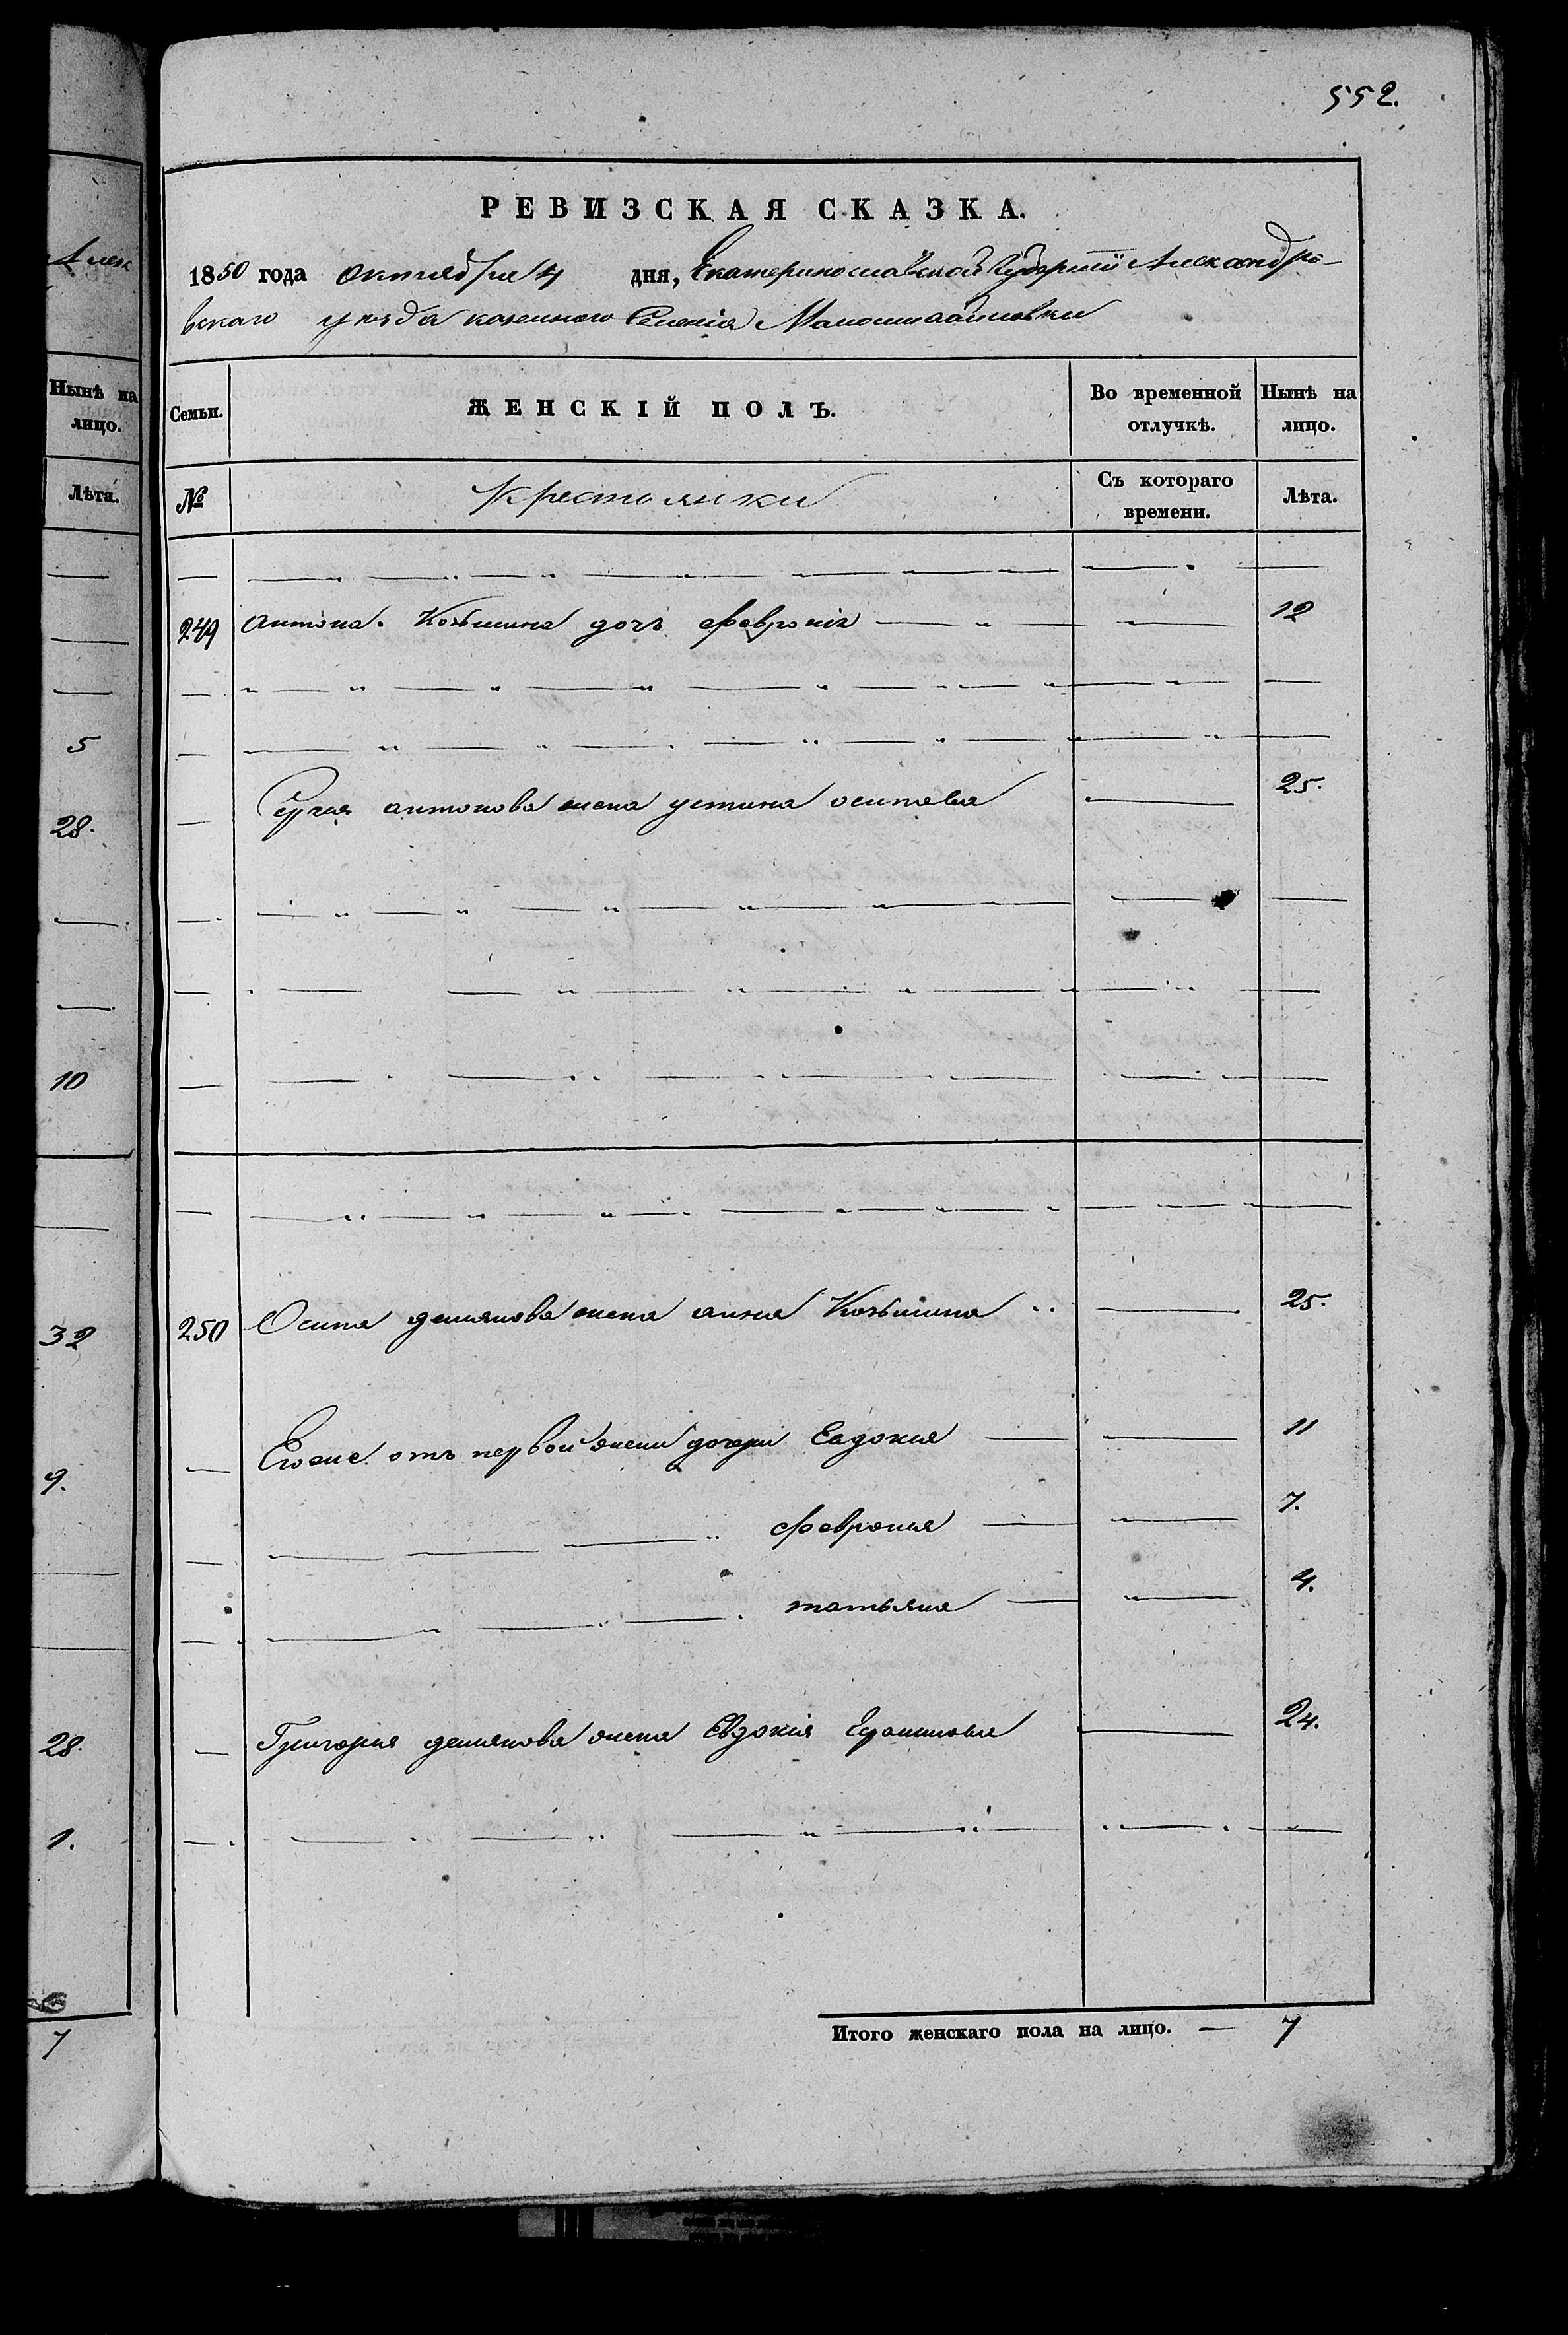 552.
РЕВИЗСКАЯ СКАЗКА.
1850 года октября 4 дня, Екатеринославской Губернии Александро-
вскаго уезда казенного Селения
Семьи. ЖЕНСКІЙ ПОЛЪ. Во временной отлучкѣ. Нынѣ на лицо.
№ Крестьянки Съ котораго времени. Лѣта.
249 Антона Козьмина дочь Феврония 12
антонова жена устина осипова 25.
250 Осипа демянова жена анна Козьмина 25.
Егоже отъ первой жены дочери Евдокия 11
Феврония 7.
татьяна 4.
Григория демянова жена Евдокія 24.
Итого женскаго пола на лицо. — 7
Алек
Нынѣ на
лицо.
Лѣта.
5
28.
10
32
9.
28.
1.
7